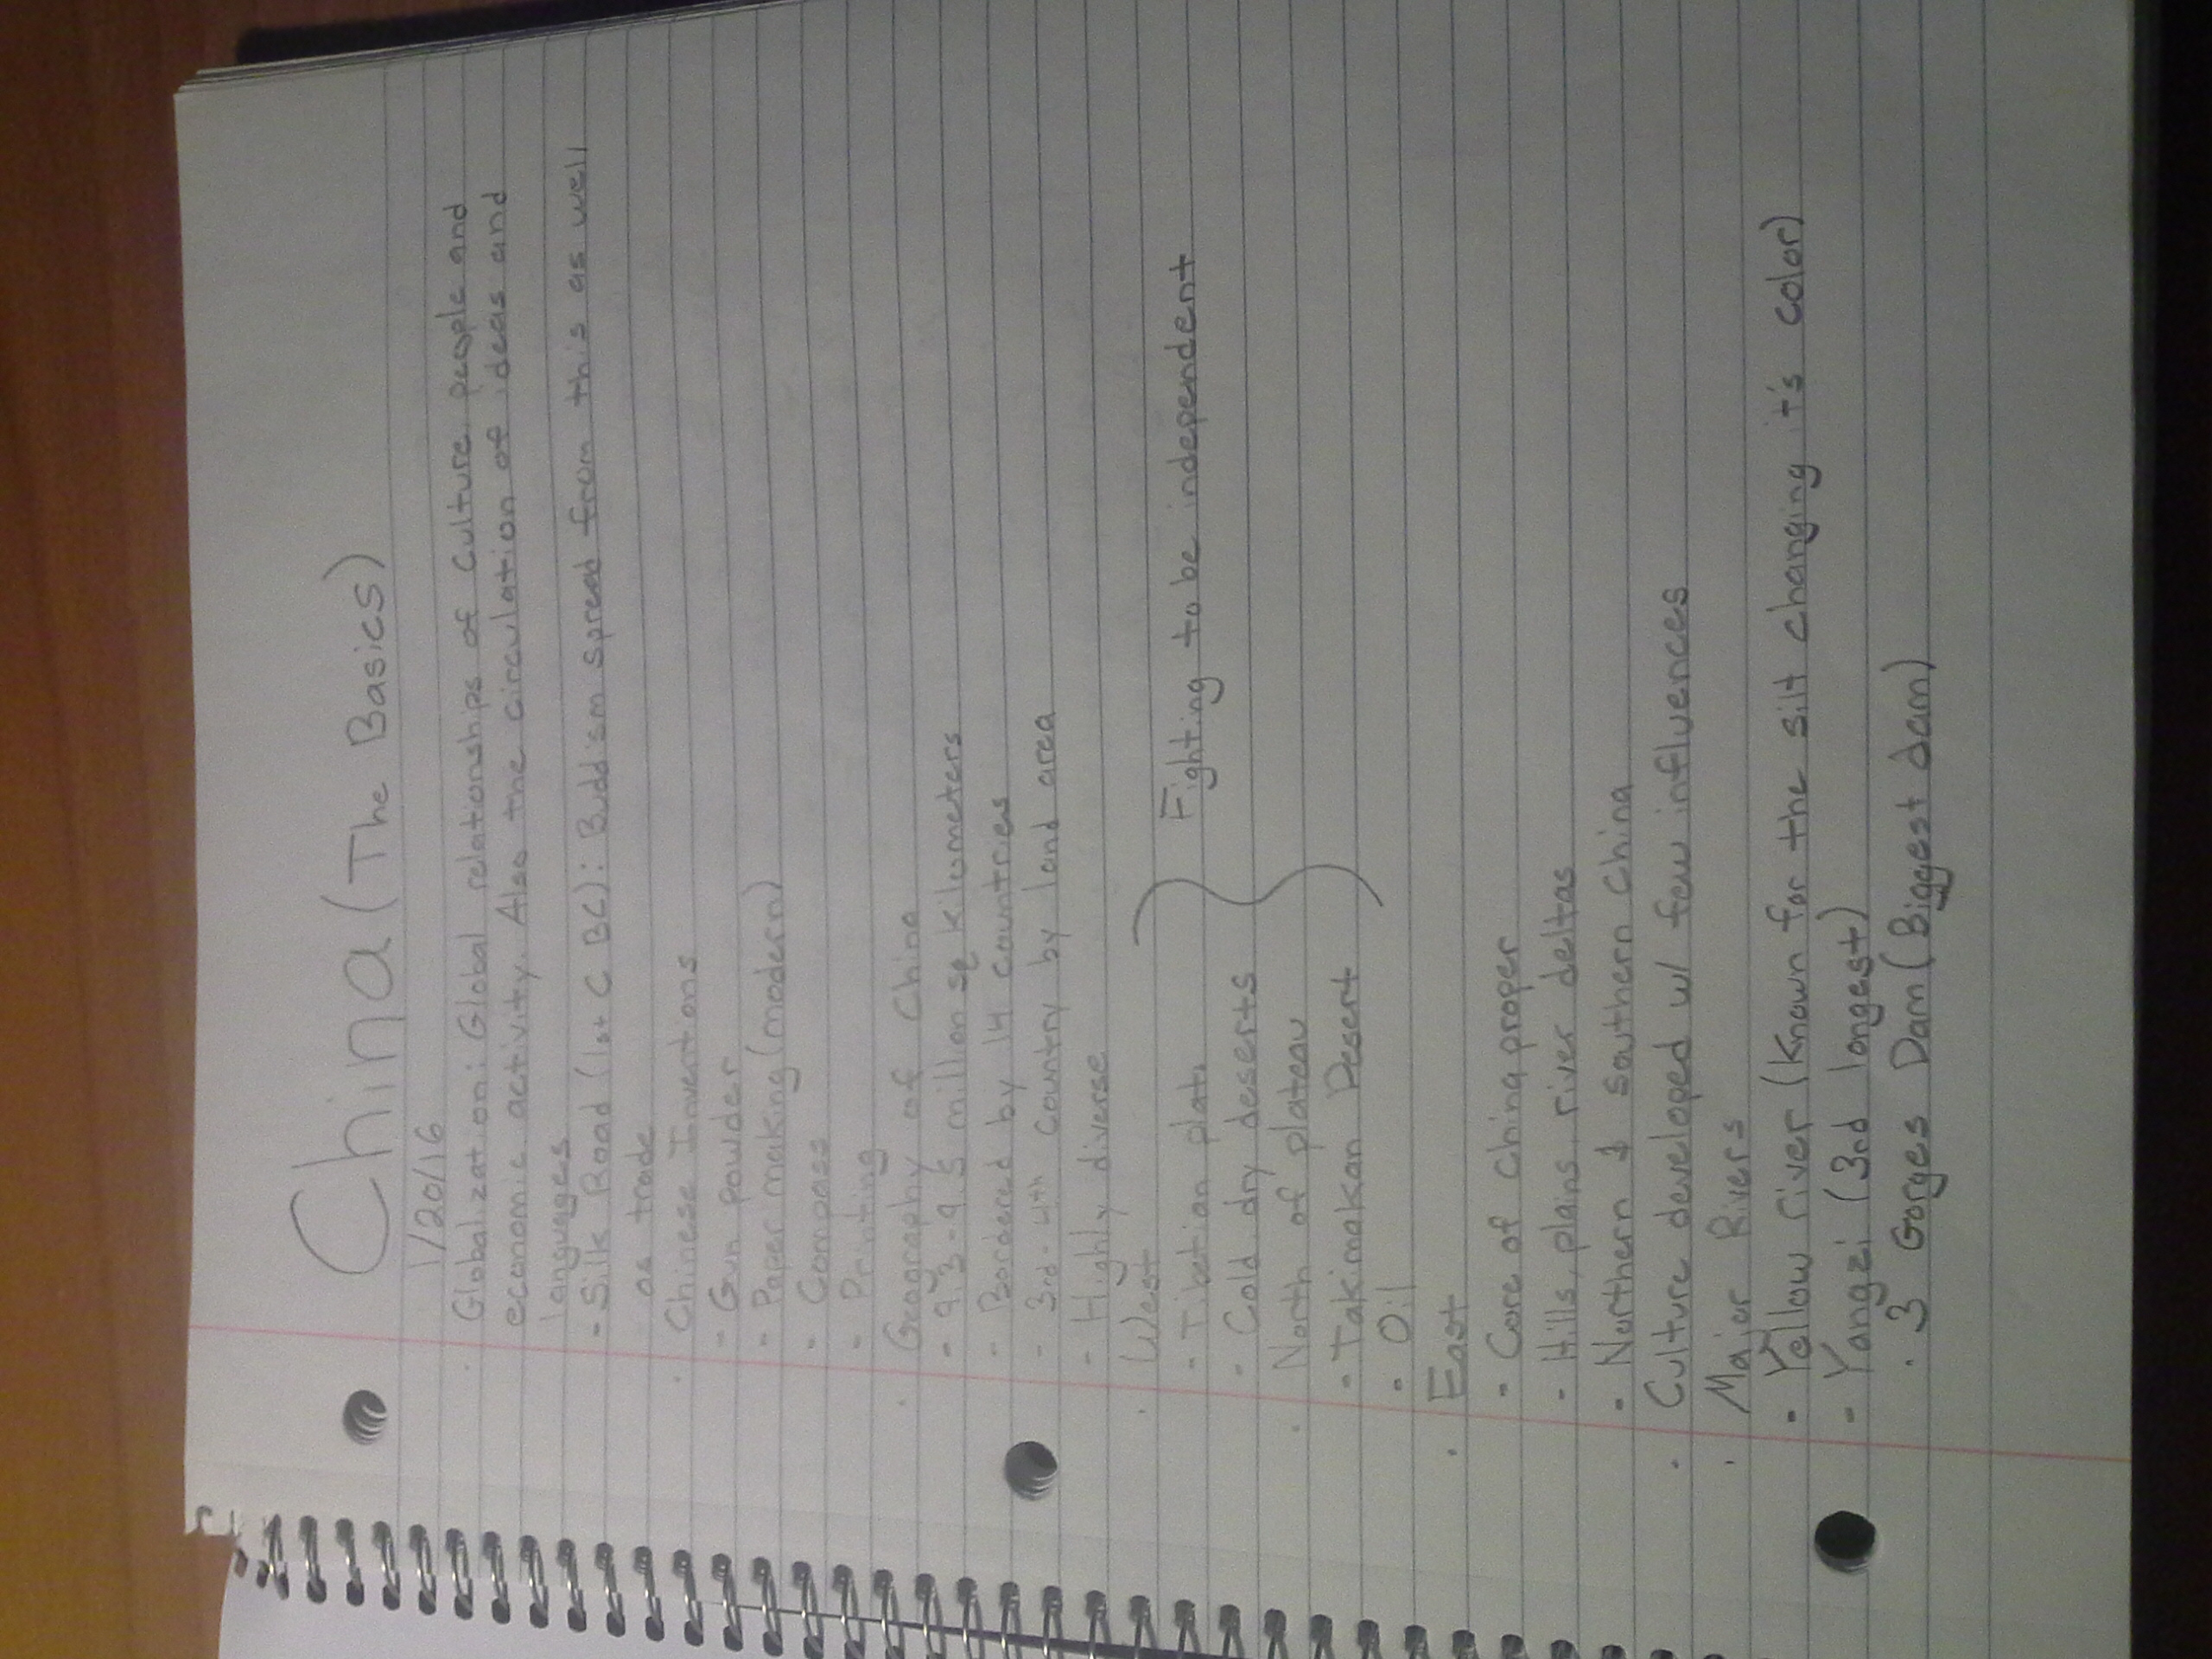 China (The Basics)
1/20/16
· Globalization: Global relationships of culture, people and
economic activity. Also the circulation of ideas and
languages
- Silk Road (1st C BC): Buddism spread from this as well
as trade
· Chinese Inventions
- Gun powder
- Paper making (modern)
- Compass
- Printing
· Geography of China
- 9.3-9.5 million sq kilometers
- Bordered by 14 countries
- 3rd-4th country by land area
- Highly diverse
· West
- Tibetian plato
- Cold dry deserts
Fighting to be independent
· North of plateau
- Takimakan Desert
- Oil
· East
- Core of China proper
- Hills, plains, river deltas
- Northern & Southern China
· Culture developed w/ few influences
· Major Rivers
- Yellow river (Known for the silt changing it's color)
- Yangzi (3rd longest)
· 3 Gorges Dam (Biggest dam)